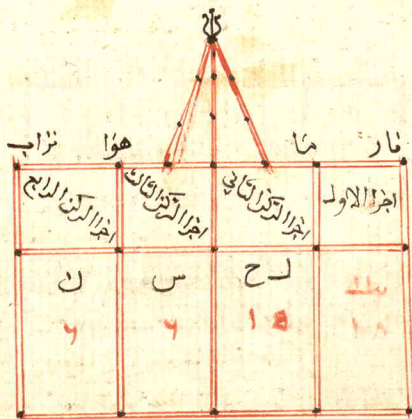 نار ما هوا تراب
اجزا الاول اجزا الركن الثاني اجزا الركن الثالث اجزا الركن الرابع
ل ح س ك
١٤ ٦ ٦